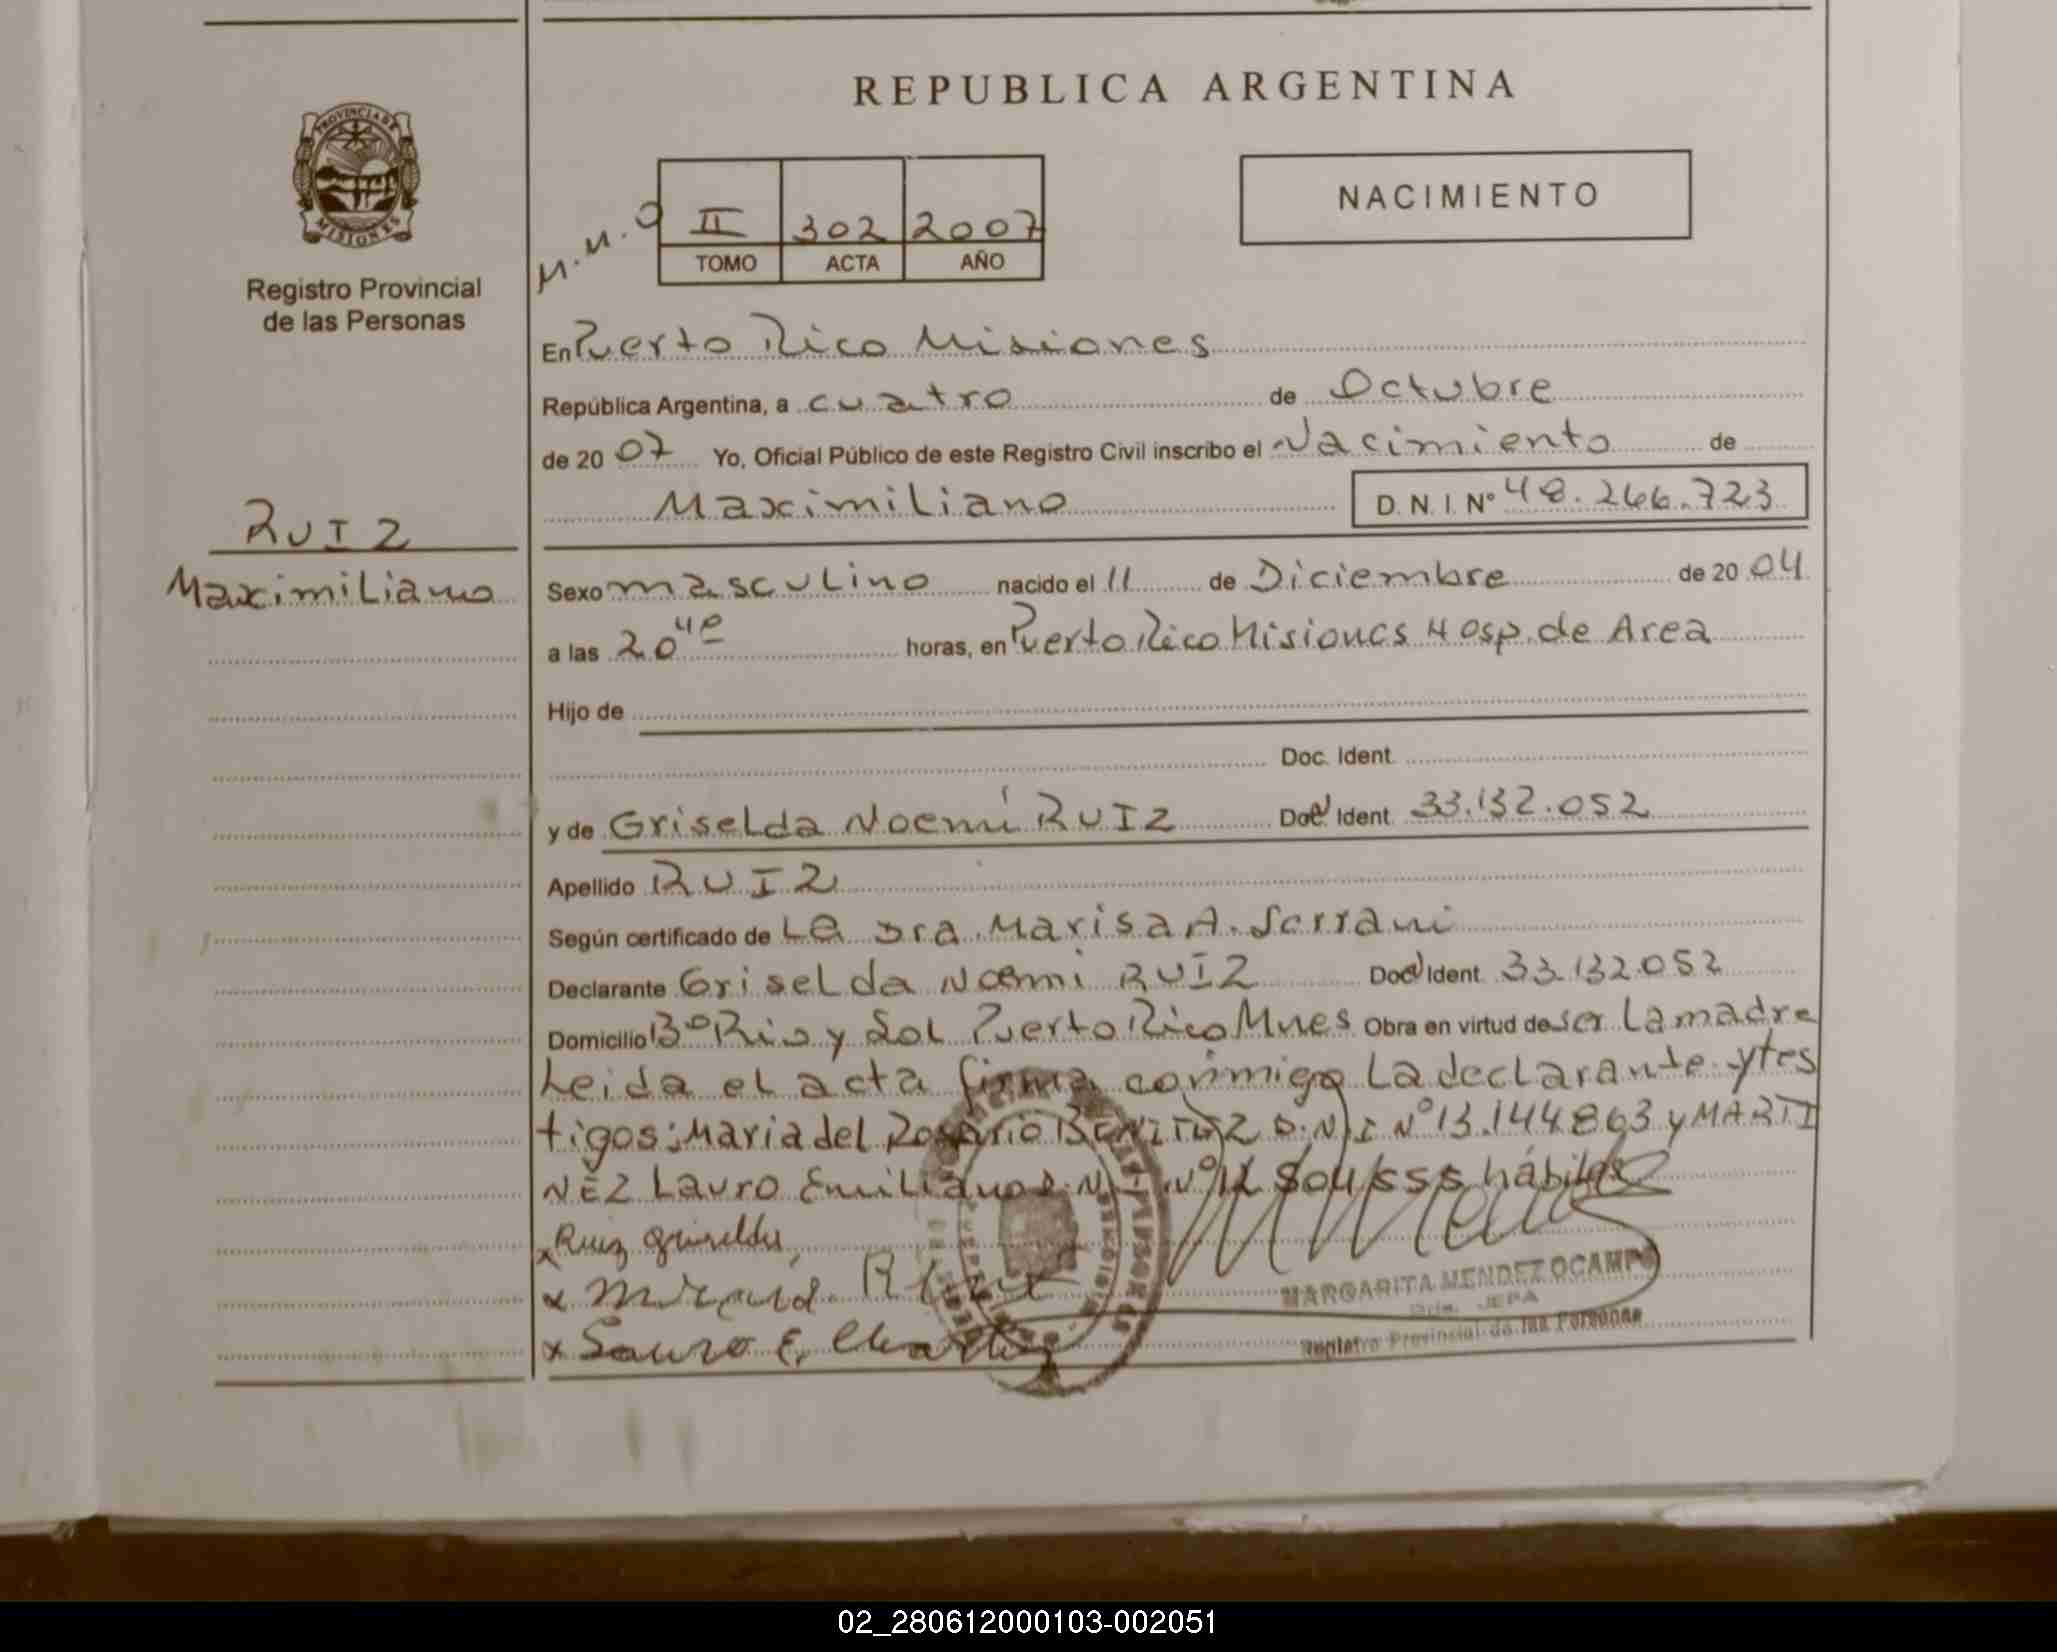 REPUBLICA ARGENTINA
PROVINCIA DE
MISIONES
Registro Provincial
de las Personas
M.M.O
II 302 2007
TOMO ACTA AÑO
NACIMIENTO
En Puerto Rico Misiones
República Argentina, a cuatro de Octubre
de 20 07 Yo, Oficial Público de este Registro Civil inscribo el Nacimiento de
Maximiliano D. N. I. Nº 48.266.723
RUIZ
Maximiliano
Sexo masculino nacido el 11 de Diciembre de 20 04
a las 20 horas, en Puerto Rico Misiones Hosp. de Area
Hijo de
Doc. Ident.
y de Griselda Noemí RUIZ Doc. Ident. 33.132.052
Apellido RUIZ
Según certificado de La Dra. Marisa A. Serrani
Declarante Griselda Noemi RUIZ Doc. Ident. 33.132.052
Domicilio Bº Rio y Sol Puerto Rico Mnes Obra en virtud de ser La madre
Leida el acta firma conmigo La declarante y tes
tigos: Maria del Rosario BENITEZ D.N.I Nº 13.144863 y MARTI
NEZ Lauro Emiliano D.N.I Nº hábiles
x Ruiz Griselda
x
x Lauro E.
MARGARITA MENDEZ OCAMPO
JEFA
Registro Provincial de las Personas
02_280612000103-002051